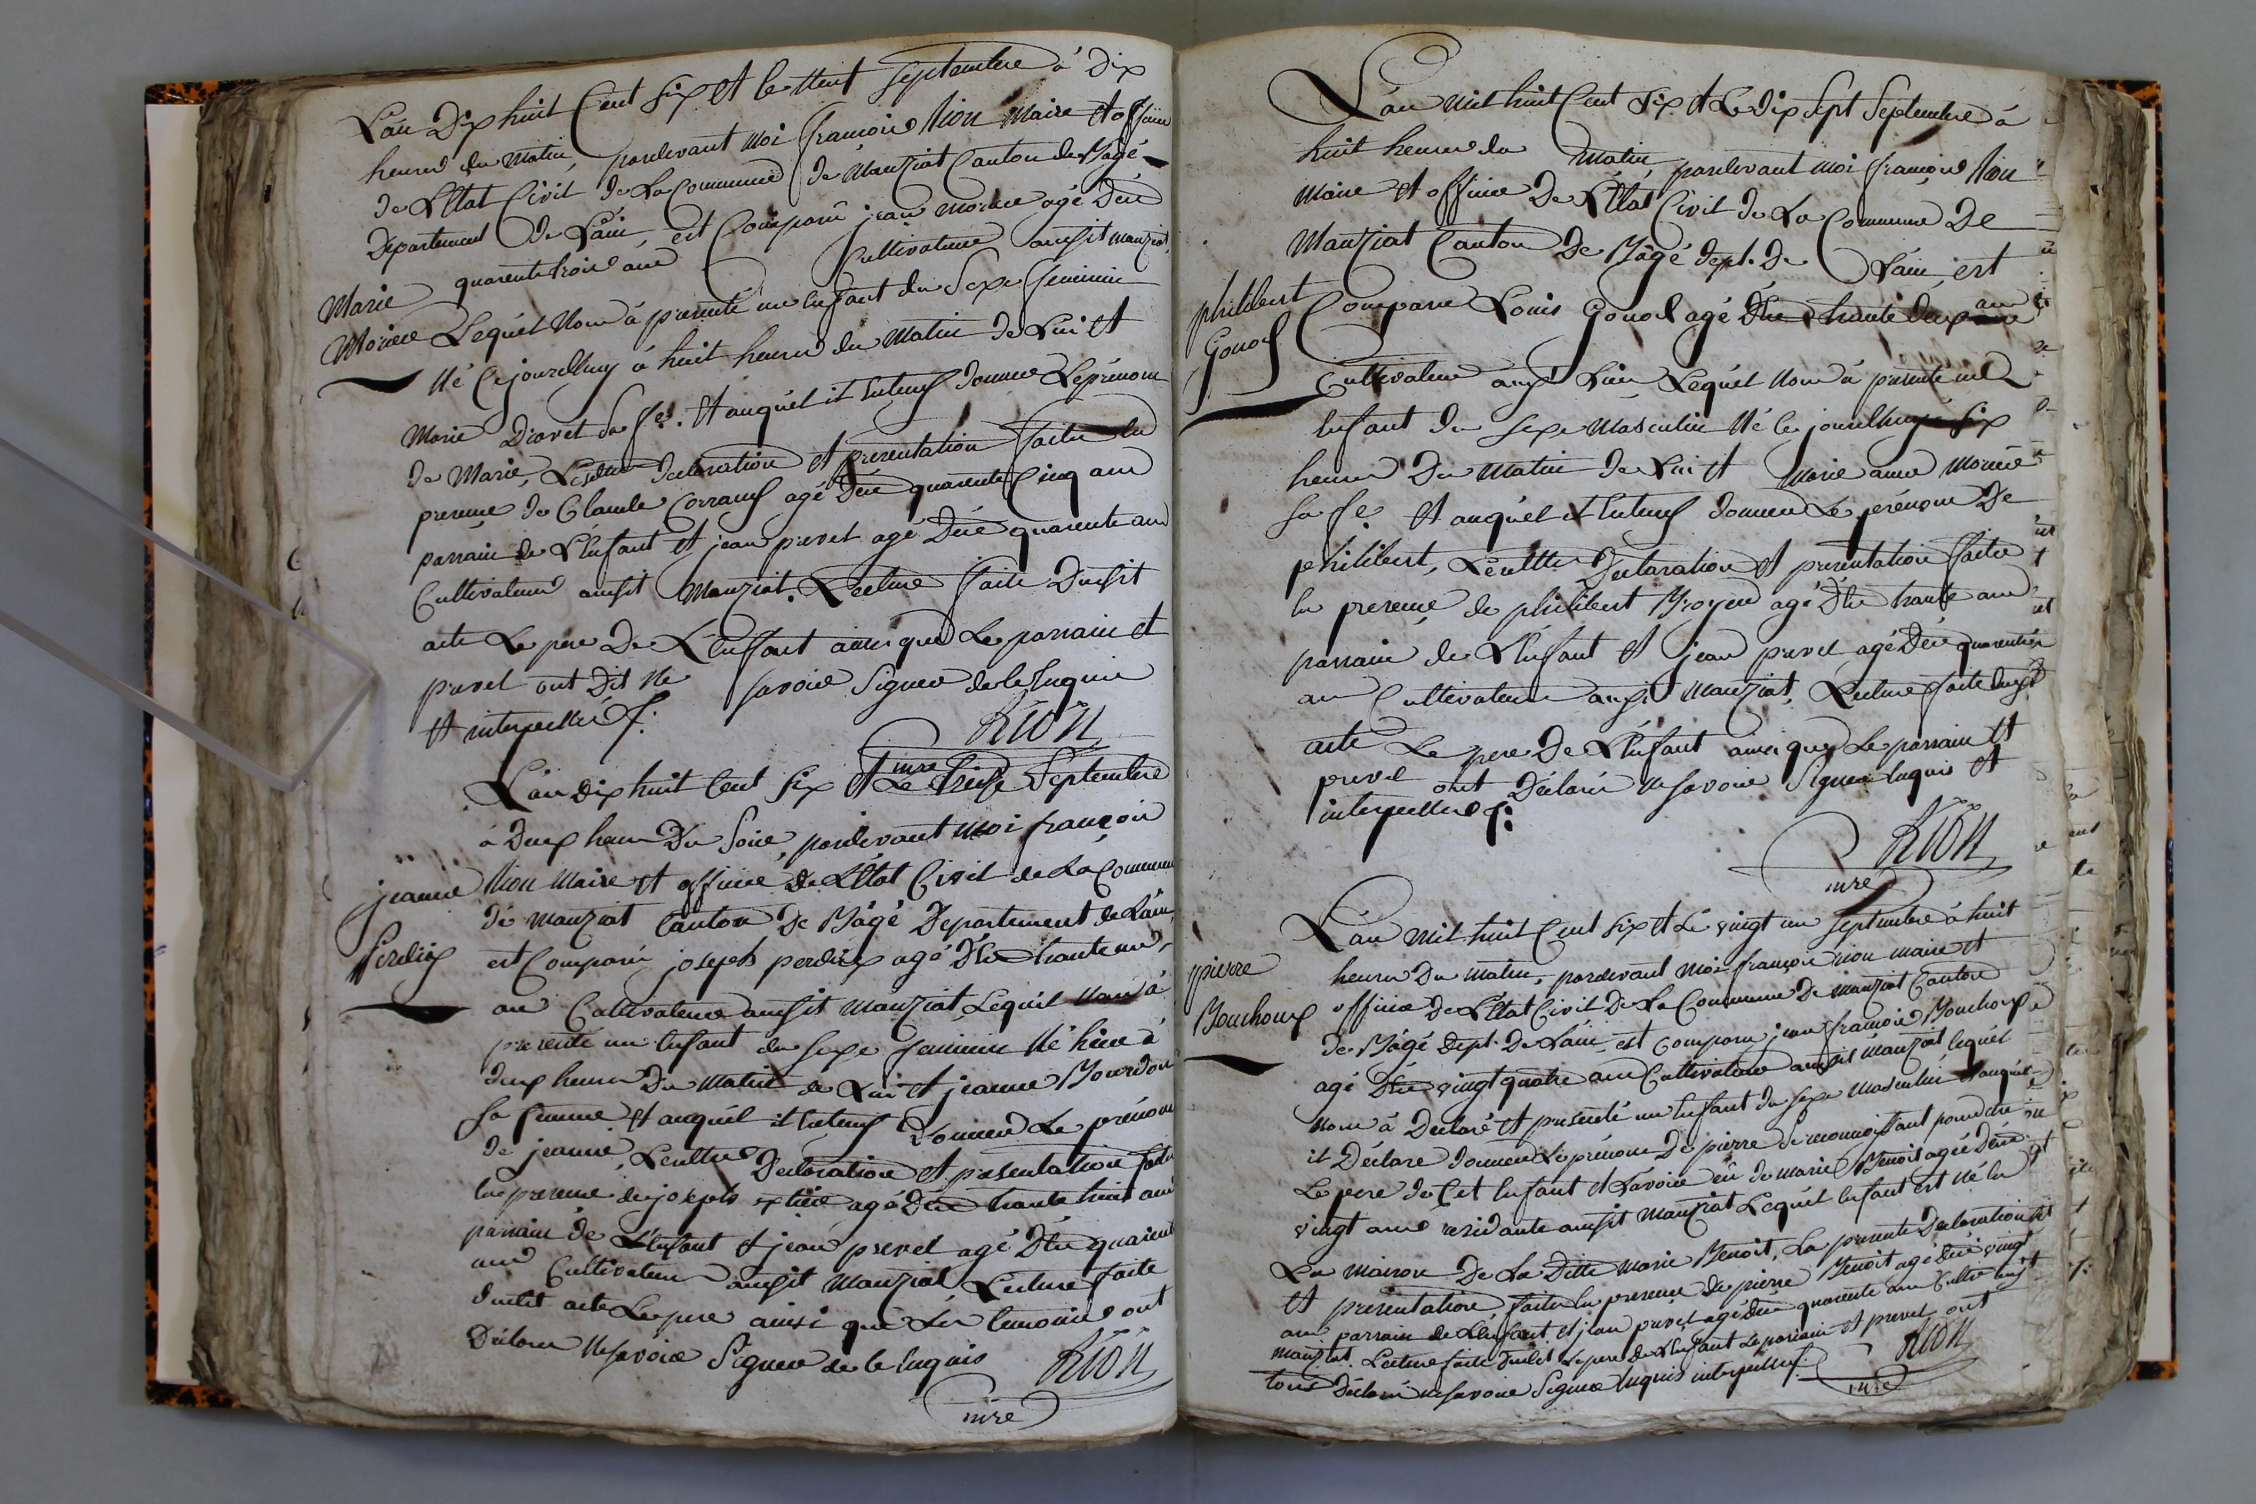 L'an Dix huit Cent Six et le Septembre à Dix
heures du matin, pardevant moi françois Rion Maire et officier
de L'Etat Civil de La Commune de Manziat Canton de Bagé
Departement de L'ain, est Comparu jean Moriere agé D'en
quarente trois ans Cultivateur audit manziat,
Marie
Moriere
Lequel Nous à presenté un Enfant du Sexe feminin
Né Cejourdhuy à huit heures du Matin de Lui et
Marie Diavet sa fe. et auquel il Entend donner Le prenom
de Marie, Lesdites declaration et presentation faites En
presence de Claude agé D'en quarente Cinq ans
parrain de L'Enfant et jean prevel agé D'en quarente ans
Cultivateurs audit Manziat. Lecture faite Dudit
acte Le pere De L'Enfant ainsi que Le parrain et
prevel ont Dit Ne savoir Signer de Ce Enquis
et interpellés.
Rion
mre
L'an dix huit Cent Six et Le treize Septembre
à Deux heures Du Soir, pardevant moi françois
jeanne
Perdrix
Rion Maire et officier de L'Etat Civil de La Commune
de manziat Canton De Bagé Departement de L'ain,
est Comparu joseph perdrix agé D'En trente un
ans Cultivateur audit Manziat, Lequel Nous à
presenté un Enfant du sexe feminin Né hier à
deux heures Du Matin de Lui et jeanne Bourdon
sa femme et auquel il Entend Donner Le prénom
de jeanne, Lesdittes Declaration et presentation faites
En presence de joseph agé D'En trente huit ans
parrain de L'Enfant et jean prevel agé D'En quarente
ans Cultivateurs audit Manziat, Lecture faite
dudit acte Le pere ainsi que Les temoins ont
Déclaré Ne savoir Signer de Ce Enquis
Rion
mre
L'an mil huit Cent Six et Le Dix Sept Septembre à
huit heures du Matin pardevant moi françois Rion
Maire et officier De L'Etat Civil de La Commune De
Manziat Canton De Bâgé dept. De L'ain, est
philibert
Gonod
Comparu Louis Gonod agé D'En trente deux ans
Cultivateur audit Lieu Lequel Nous à presenté un
Enfant du sexe Masculin Né Cejourdhuy à six
heures Du Matin de Lui et Marie anne Moriere
sa fe. et auquel il Entend donner Le prénom De
philibert, Lesdittes Declaration et presentation faites
En presence de philibert Broyer agé D'En trente ans
parrain de L'Enfant et jean prevel agé D'En quarente
ans Cultivateurs audit Manziat, Lecture faite dudit
acte Le pere De L'Enfant ainsi que Le parrain et
prevel ont Déclaré Ne savoir Signer Enquis et
interpellés.
Rion
mre
L'an mil huit Cent Six et Le vingt un Septembre à huit
heures Du Matin, pardevant Moi françois Rion maire et
pierre
Bouchoux
officier De L'Etat Civil De La Commune De Manziat Canton
de Bâgé Dept. De L'ain, est Comparu jean françois Bouchoux
agé D'En vingt quatre ans Cultivateur audit Manziat lequel
nous à Declaré et presenté un Enfant du sexe Masculin auquel
il Déclare donner Le prénom De pierre Se reconnoissant pour être
Le pere de Cet Enfant et L'avoir eû de marie Benoit agée D'En
vingt ans residante audit Manziat Lequel Enfant est Né En
La maison De La Ditte Marie Benoit, La presente Declaration
et presentation faites En presence De pierre Benoit agé D'En vingt
ans parrain de L'Enfant et jean prevel agé D'En quarente ans Cultiv. audit
manziat. Lecture faite Dudit Le pere de L'Enfant Le parrain et prevel ont
tous Declaré Ne savoir Signer Enquis interpellés.
Rion
mre